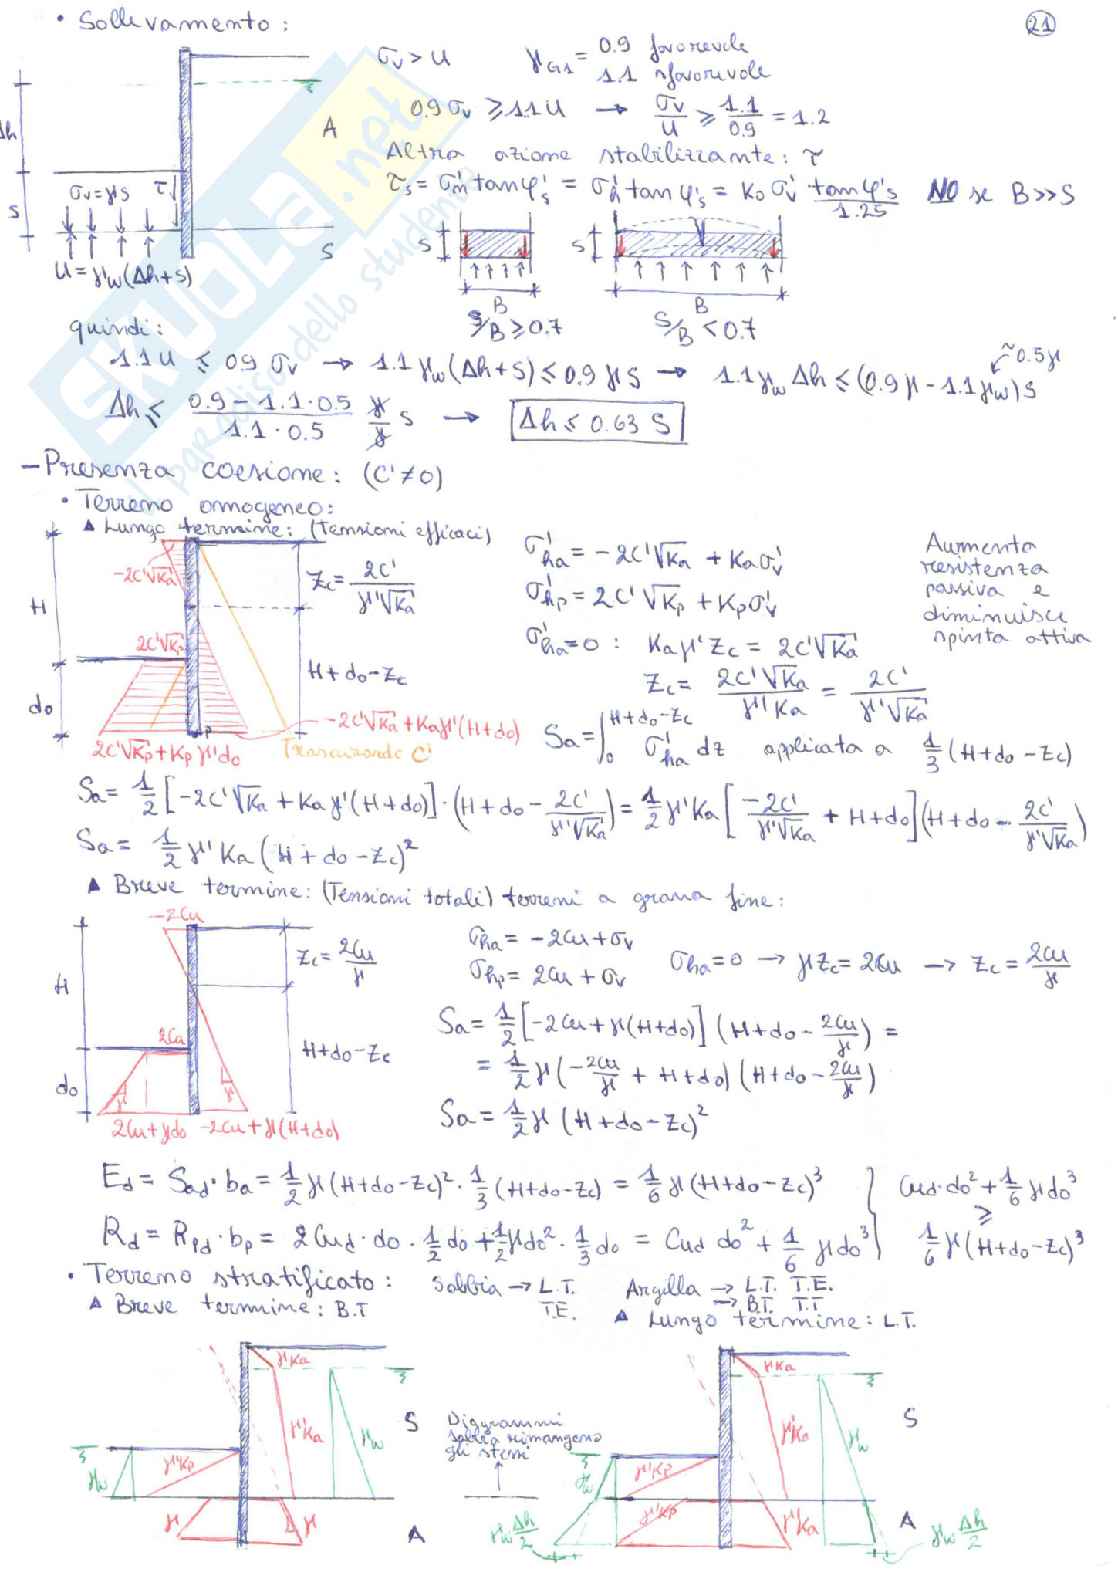 21
• Sollevamento:
σv > u   γG1 = 0.9 favorevole
1.1 sfavorevole
0.9 σv ≥ 1.1 u → σv/u ≥ 1.1/0.9 = 1.2
Δh
A
Altra azione stabilizzante: τ
τs = σ'n tanφ's = σ'h tanφ's = K0 σ'v tanφ's/1.25   NO se B >> S
σv = γS   τ
S
S
u = γw(Δh+S)
S   S
B   B
S/B ≥ 0.7   S/B < 0.7
quindi:
1.1 u ≤ 0.9 σv → 1.1 γw (Δh+S) ≤ 0.9 γ S → 1.1 γw Δh ≤ (0.9 γ - 1.1 γw) S
~0.5γ
Δh ≤ (0.9 - 1.1·0.5)/(1.1·0.5) γ/γ S → Δh ≤ 0.63 S
- Presenza coesione: (C' ≠ 0)
• Terreno omogeneo:
▲ Lungo termine: (Tensioni efficaci)
-2C'√Ka
zc = 2C'/(γ'√Ka)
H
2C'√Kp
H + do - zc
do
P
2C'√Kp + Kp γ' do
-2C'√Ka + Ka γ'(H+do)
Trascurando C'
σ'ha = -2C'√Ka + Ka σ'v
σ'hp = 2C'√Kp + Kp σ'v
σ'ha = 0 : Ka γ' zc = 2C'√Ka
zc = 2C'√Ka/(γ' Ka) = 2C'/(γ'√Ka)
Aumenta
resistenza
passiva e
diminuisce
spinta attiva
Sa = ∫0^(H+do-zc) σ'ha dz applicata a 1/3 (H+do-zc)
Sa = 1/2 [-2C'√Ka + Ka γ'(H+do)]·(H+do - 2C'/(γ'√Ka)) = 1/2 γ' Ka [-2C'/(γ'√Ka) + H+do](H+do - 2C'/(γ'√Ka))
Sa = 1/2 γ' Ka (H+do-zc)²
▲ Breve termine: (Tensioni totali) terreni a grana fine:
-2Cu
zc = 2Cu/γ
H
2Cu
H+do-zc
do
γ   γ
2Cu+γdo   -2Cu+γ(H+do)
σha = -2Cu + σv
σhp = 2Cu + σv
σha = 0 → γ zc = 2Cu → zc = 2Cu/γ
Sa = 1/2 [-2Cu + γ(H+do)] (H+do - 2Cu/γ) =
= 1/2 γ (-2Cu/γ + H+do) (H+do - 2Cu/γ)
Sa = 1/2 γ (H+do-zc)²
Ed = Sad · ba = 1/2 γ (H+do-zc)² · 1/3 (H+do-zc) = 1/6 γ (H+do-zc)³
Rd = Rpd · bp = 2Cud · do · 1/2 do + 1/2 γdo² · 1/3 do = Cud do² + 1/6 γdo³
Cud·do² + 1/6 γdo³
≥
1/6 γ (H+do-zc)³
• Terreno stratificato: Sabbia → L.T. T.E.   Argilla → L.T. T.E.
→ B.T. T.T
▲ Breve termine: B.T
▲ Lungo termine: L.T.
γKa
γ'Ka
γw
S
γ'Kp
γw
γ   γ
A
Diagrammi
sabbia rimangono
gli stessi
γKa
γ'Ka
γw
S
γ'Kp
γw
γ'Kp
γ'Ka
A
γw Δh/2   γw Δh/2
SKUOLA.net
il paradiso dello studente